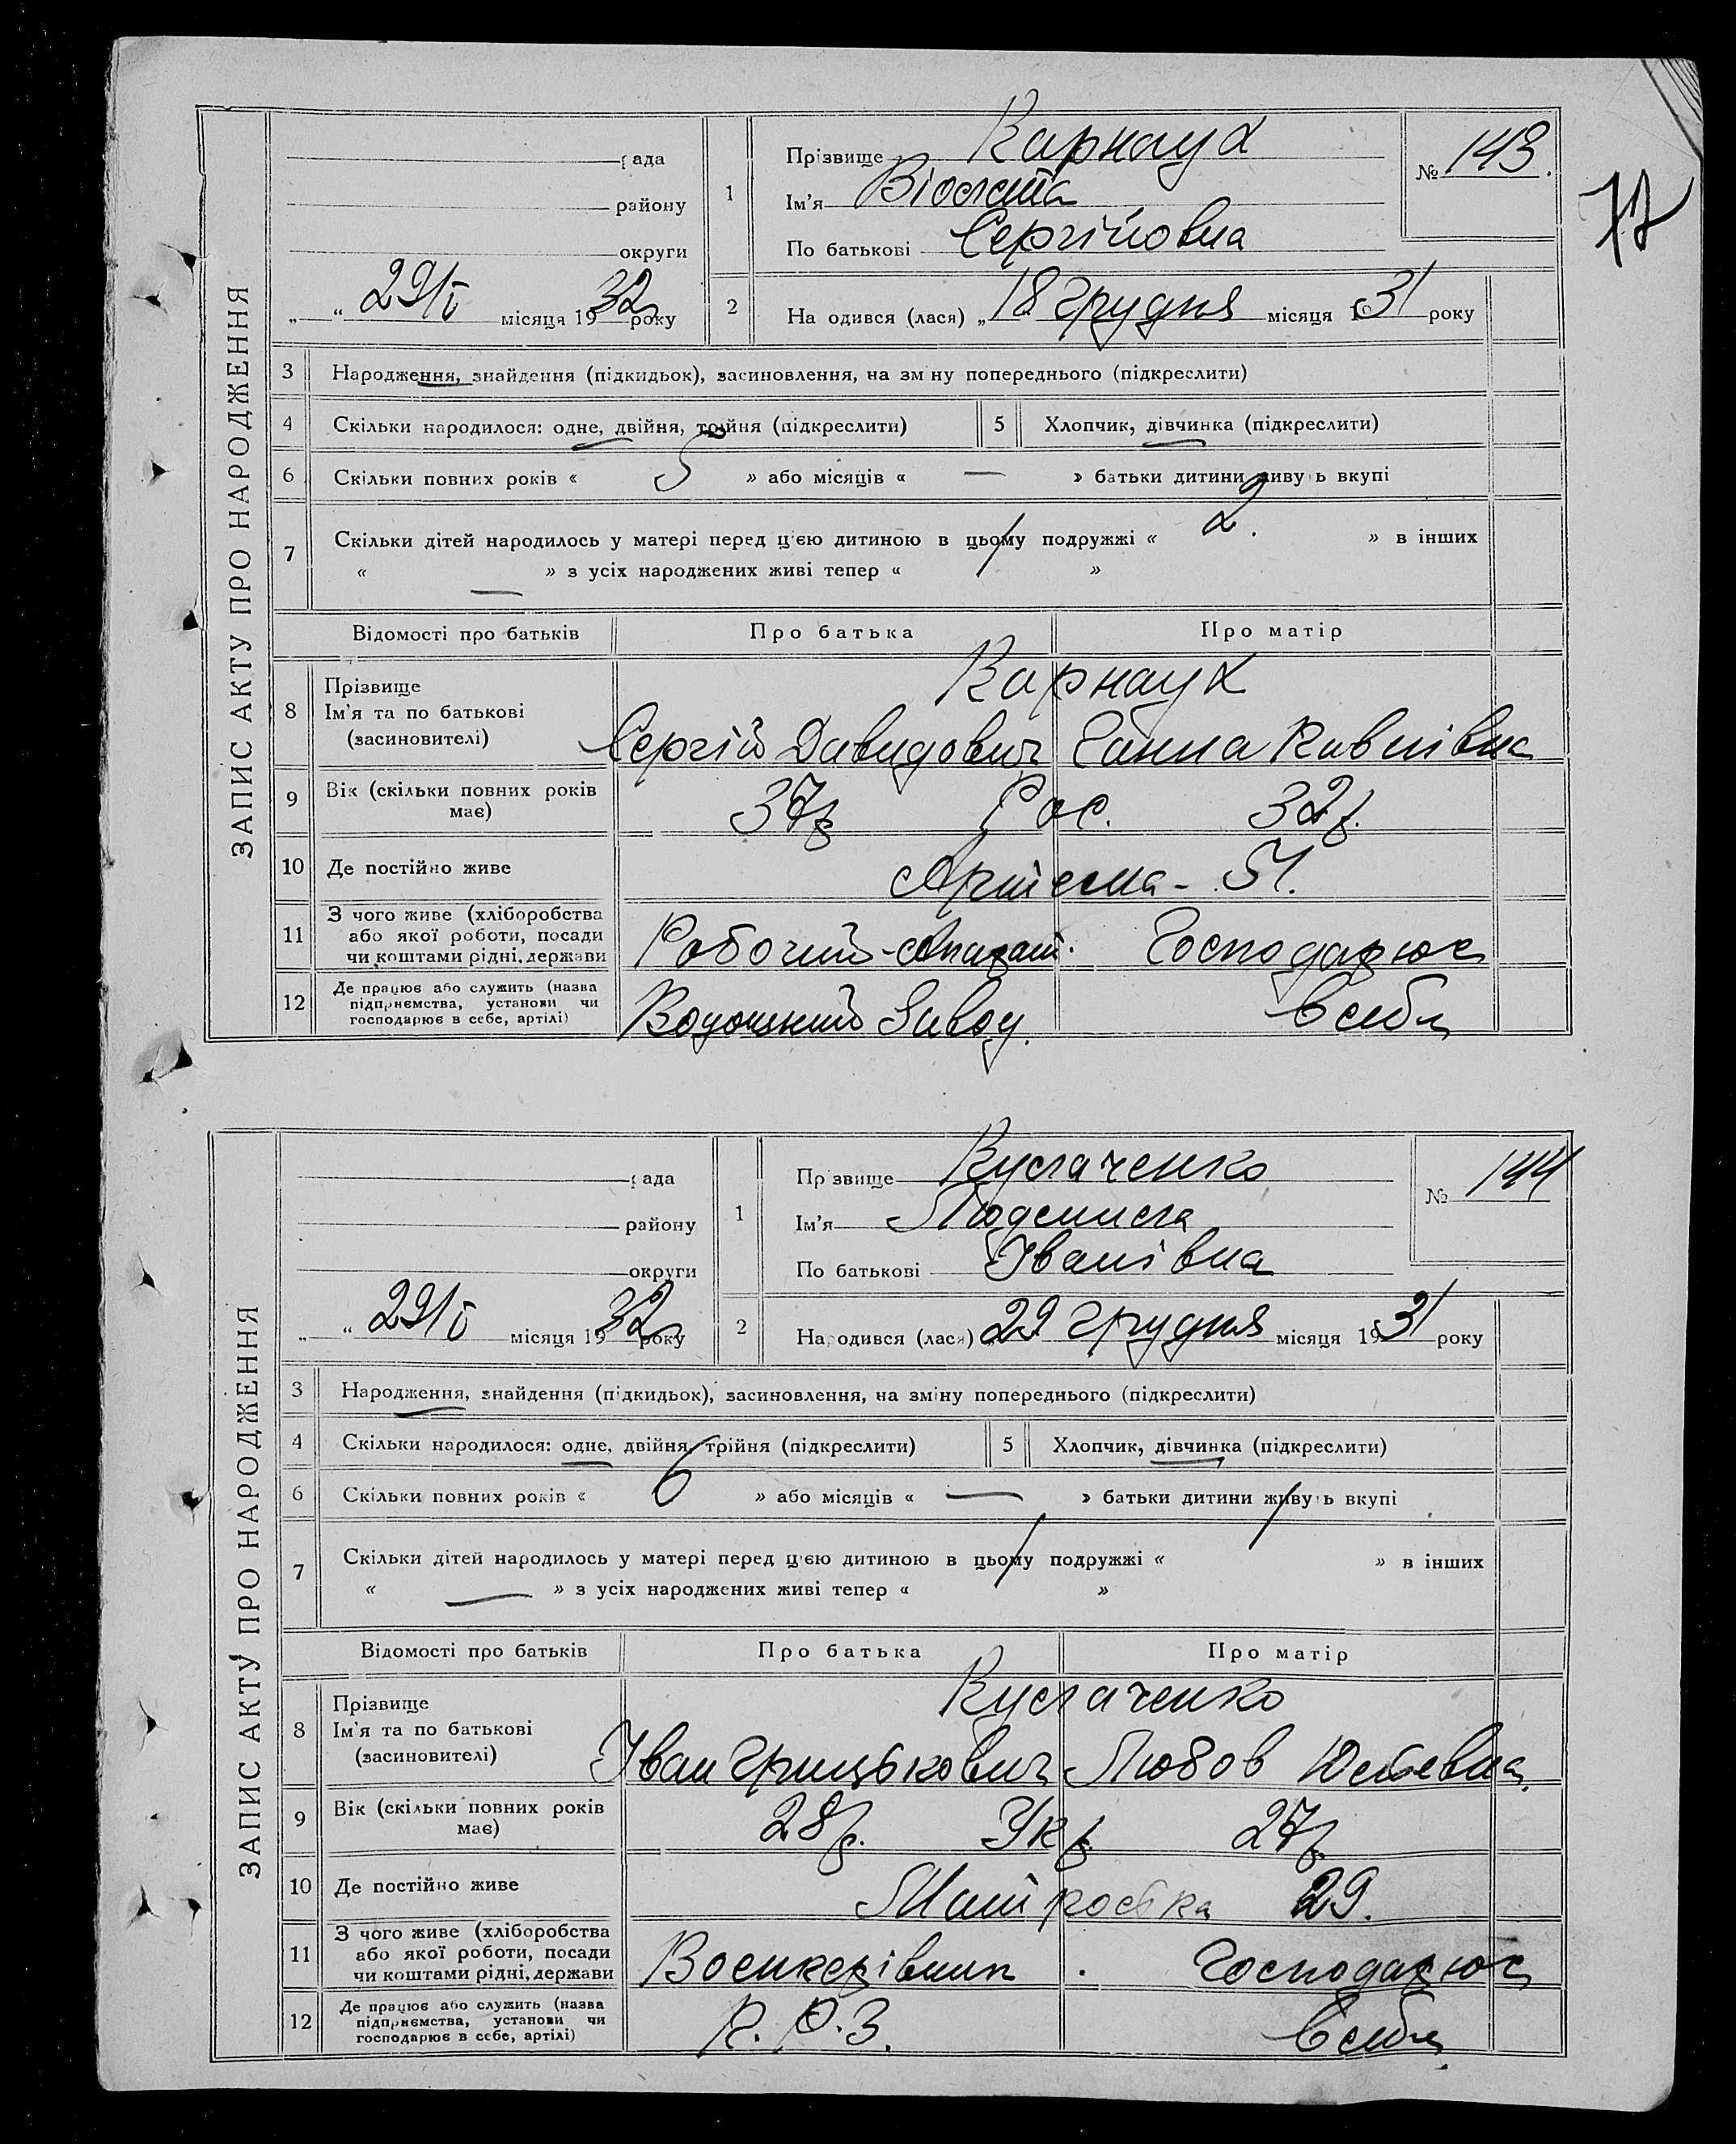 77
ЗАПИС АКТУ ПРО НАРОДЖЕННЯ
рада
району
округи
„ “ 29/I місяця 1932 року
1
Прізвище Карнаух
Ім'я Віолета
По батькові Сергійовна
№ 143.
2 Народився (лася) „18 грудня місяця 1931 року
3 Народження, знайдення (підкидьок), засиновлення, на зміну попереднього (підкреслити)
4 Скільки народилося: одне, двійня, трійня (підкреслити) 5 Хлопчик, дівчинка (підкреслити)
6 Скільки повних років « 5 » або місяців « — » батьки дитини живуть вкупі
7 Скільки дітей народилось у матері перед цією дитиною в цьому подружжі « 2. » в інших
« — » з усіх народжених живі тепер « »
Відомості про батьків Про батька Про матір
8 Прізвище
Ім'я та по батькові
(засиновителі)
Карнаух
Сергій Давидович Ганна Павлівна
9 Вік (скільки повних років має) 37р Рос. 32р.
10 Де постійно живе Артема - 51.
11 З чого живе (хліборобства
або якої роботи, посади
чи коштами рідні, держави
Робочий- Господарює
12 Де працює або служить (назва
підприємства, установи чи
господарює в себе, артілі)
Завод. в себе
ЗАПИС АКТУ ПРО НАРОДЖЕННЯ
рада
району
округи
„ “ 29/I місяця 1932 року
1
Прізвище Куслаченко
Ім'я Людмила
По батькові Іванівна
№ 144
2 Народився (лася) „29 грудня місяця 1931 року
3 Народження, знайдення (підкидьок), засиновлення, на зміну попереднього (підкреслити)
4 Скільки народилося: одне, двійня, трійня (підкреслити) 5 Хлопчик, дівчинка (підкреслити)
6 Скільки повних років « 6 » або місяців « — » батьки дитини живуть вкупі
7 Скільки дітей народилось у матері перед цією дитиною в цьому подружжі « 1 » в інших
« — » з усіх народжених живі тепер « 1 »
Відомості про батьків Про батька Про матір
8 Прізвище
Ім'я та по батькові
(засиновителі)
Куслаченко
Іван Грицькович Любов
9 Вік (скільки повних років має) 28р. Укр. 27р.
10 Де постійно живе 29.
11 З чого живе (хліборобства
або якої роботи, посади
чи коштами рідні, держави
Воєнкерівник Господарює
12 Де працює або служить (назва
підприємства, установи чи
господарює в себе, артілі)
К. Р. З. в себе